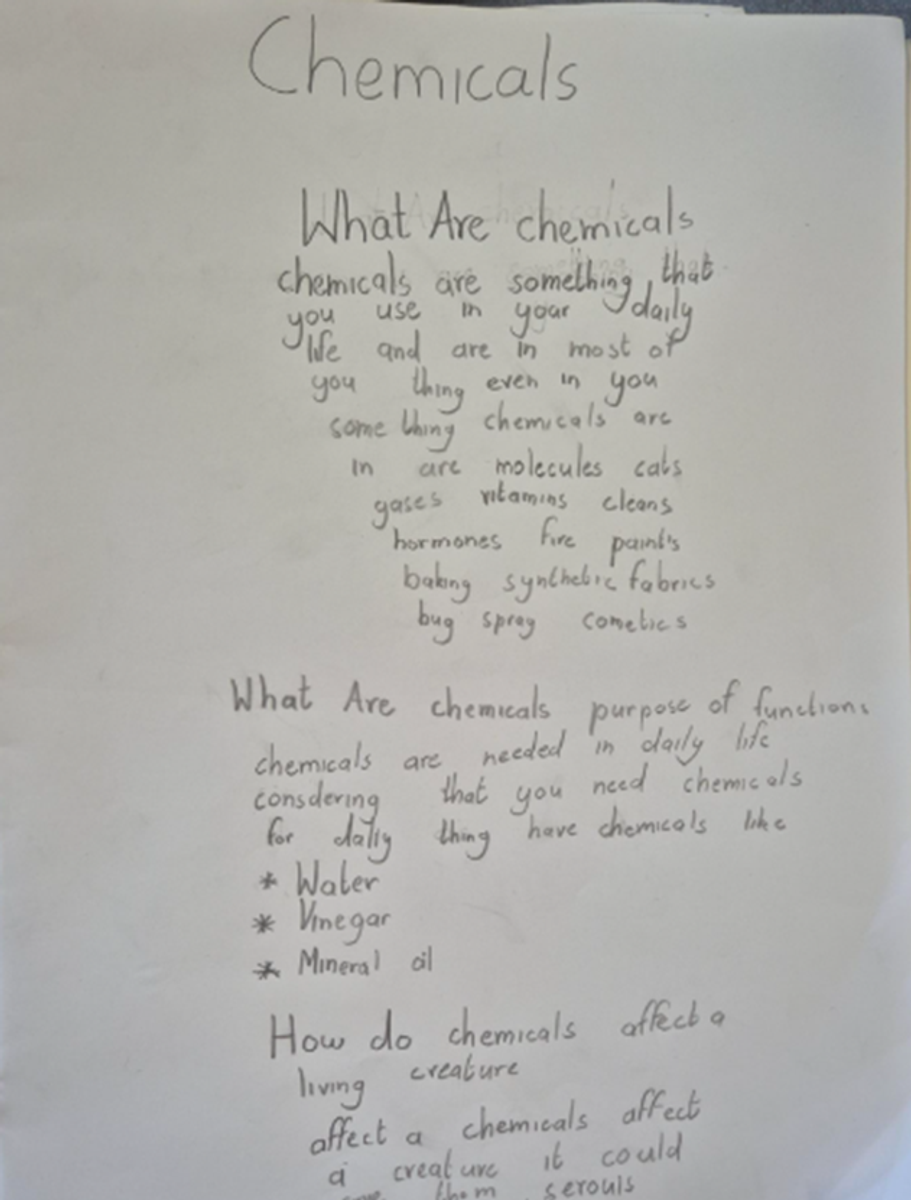 Chemicals
What Are chemicals
chemicals are something that
you use in your daily
life and are in most of
you thing even in you
some thing chemicals are
in are molecules cats
gases vitamins cleans
hormones fire paints
baking synthetic fabrics
bug spray cometics
What Are chemicals purpose of functions
chemicals are needed in daily life
consdering that you need chemicals
for daily thing have chemicals like
* Water
* Vinegar
* Mineral oil
How do chemicals affect a
living creature
affect a chemicals affect
a creature it could
them serouis